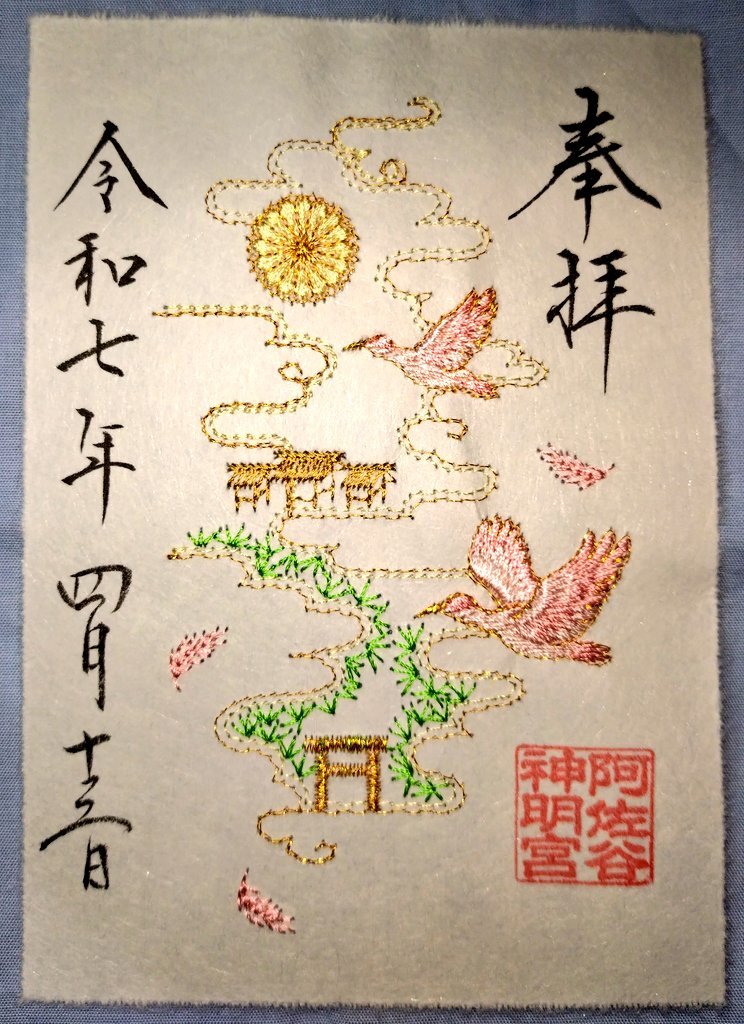 奉拝
阿佐谷
神明宮
令和七年四月十三日